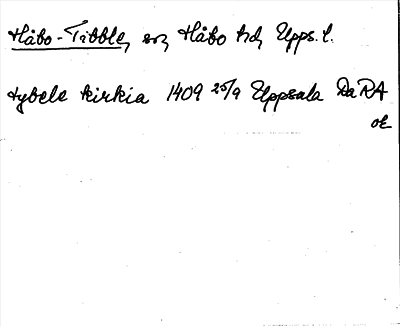 Håbo-Tibble, sn, Håbo hd, Upps. l.
tybele kirkia 1409 25/9 Uppsala Da RA